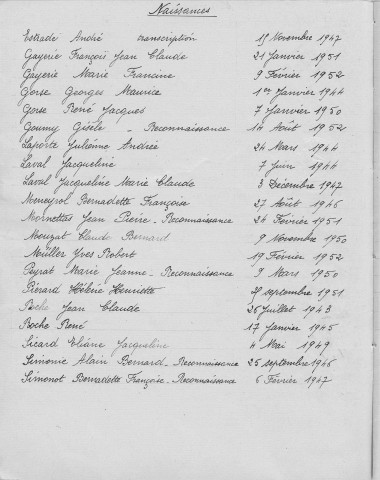 Naissances
Estrade André transcription 19 Novembre 1947
Gayerie François Jean Claude 21 Janvier 1951
Gayerie Marie Francine 9 Février 1952
Gorse Georges Maurice 1er Janvier 1944
Gorse René Jacques 7 Janvier 1950
Goumy Gisèle - Reconnaissance 14 Août 1952
Laporte Julienne Andrée 24 Mars 1944
Laval Jacqueline 7 Juin 1944
Laval Jacqueline Marie Claude 3 Décembre 1947
Meneyrol Bernadette Françoise 27 Août 1946
Mornettas Jean Pierre - Reconnaissance 26 Février 1951
Mouzat Claude Bernard 9 Novembre 1950
Müller Yves Robert 19 Février 1952
Peyrat Marie Jeanne - Reconnaissance 9 Mars 1950
Pérard Hélène Henriette septembre 1951
Roche Jean Claude 26 Juillet 1943
Roche René 17 Janvier 1945
Sicard Eliane Jacqueline 4 Mai 1949
Simonie Alain Bernard - Reconnaissance 25 septembre 1946
Simonot Bernadette Françoise - Reconnaissance 6 Février 1947